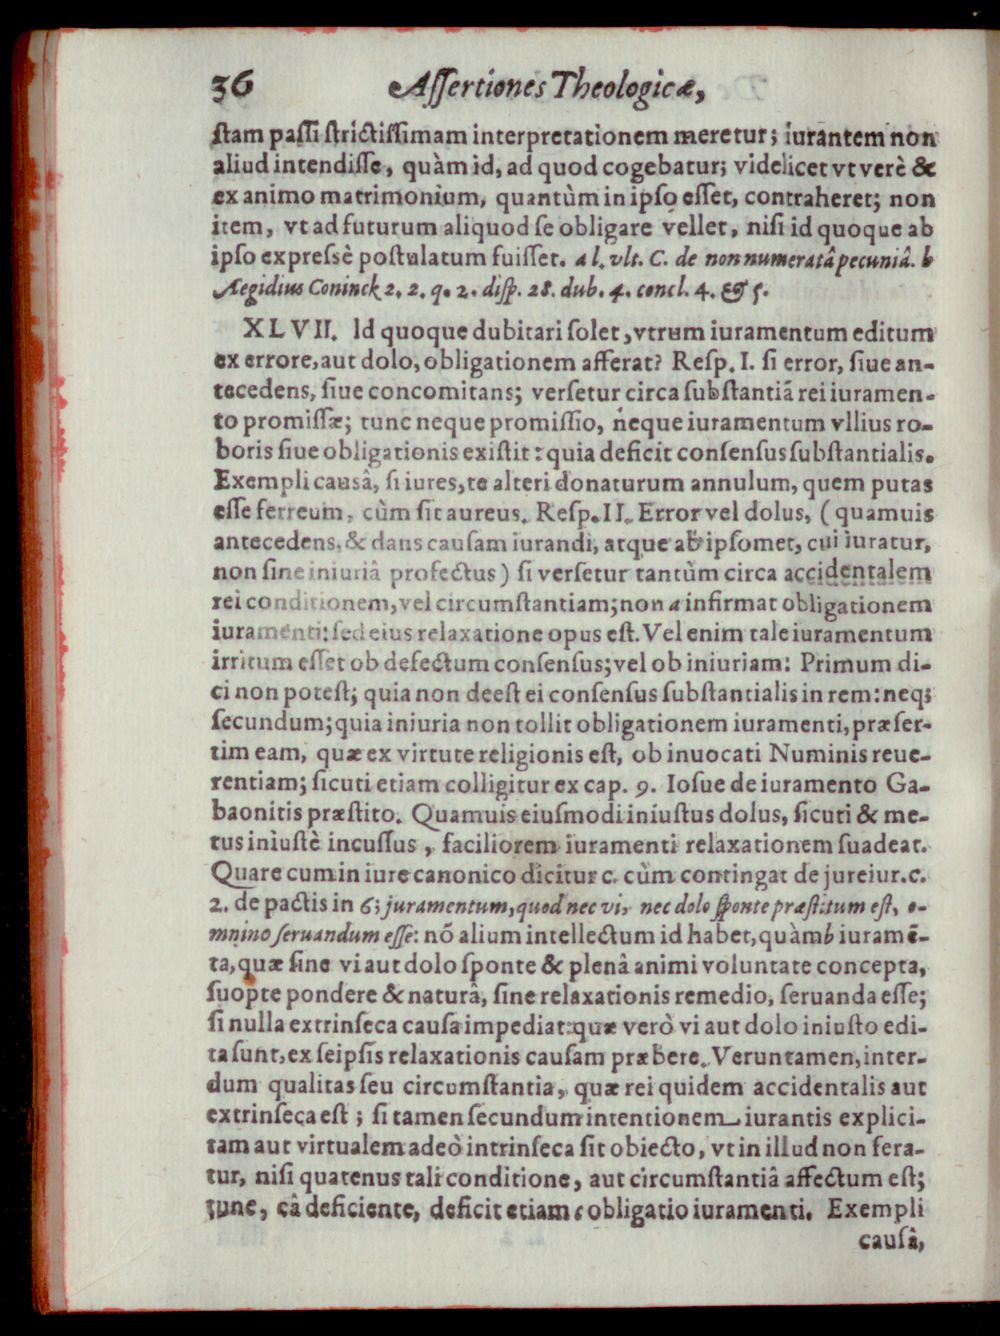 36 Assertiones Theologicæ,
stam passi strictissimam interpretationem meretur; iurantem non
aliud intendisse, quàm id, ad quod cogebatur; videlicet vt verè &
ex animo matrimonium, quantùm in ipso esset, contraheret; non
item, vt ad futurum aliquod se obligare vellet, nisi id quoque ab
ipso expressè postulatum fuisset. a l. vlt. C. de non numeratâ pecuniâ. b
Aegidius Coninck 2. 2. q. 2. disp. 28. dub. 4. concl. 4. & 5.
XLVII. Id quoque dubitari solet, vtrum iuramentum editum
ex errore, aut dolo, obligationem afferat? Resp. I. si error, siue an-
tecedens, siue concomitans; versetur circa substantiã rei iuramen-
to promissæ; tunc neque promissio, neque iuramentum vllius ro-
boris siue obligationis existit: quia deficit consensus substantialis.
Exempli causâ, si iures, te alteri donaturum annulum, quem putas
esse ferreum, cùm sit aureus. Resp. II. Error vel dolus, (quamuis
antecedens, & dans causam iurandi, atque ab ipsomet, cui iuratur,
non sine iniuriâ profectus) si versetur tantùm circa accidentalem
rei conditionem, vel circumstantiam; non a infirmat obligationem
iuramenti: sed eius relaxatione opus est. Vel enim tale iuramentum
irritum esset ob defectum consensus; vel ob iniuriam: Primum di-
ci non potest; quia non deest ei consensus substantialis in rem: neq;
secundum; quia iniuria non tollit obligationem iuramenti, præser-
tim eam, quæ ex virtute religionis est, ob inuocati Numinis reue-
rentiam; sicuti etiam colligitur ex cap. 9. Iosue de iuramento Ga-
baonitis præstito. Quamuis eiusmodi iniustus dolus, sicuti & me-
tus iniustè incussus, faciliorem iuramenti relaxationem suadeat.
Quare cum in iure canonico dicitur c. cùm contingat de jureiur. c.
2. de pactis in 6; juramentum, quod nec vi, nec dolo sponte præstitum est, o-
mnino seruandum esse: nõ alium intellectum id habet, quàm b iuramẽ-
ta, quæ sine vi aut dolo sponte & plenâ animi voluntate concepta,
suopte pondere & naturâ, sine relaxationis remedio, seruanda esse;
si nulla extrinseca causa impediat: quæ verò vi aut dolo iniusto edi-
ta sunt, ex seipsis relaxationis causam præbere. Veruntamen, inter-
dum qualitas seu circumstantia, quæ rei quidem accidentalis aut
extrinseca est; si tamen secundum intentionem iurantis explici-
tam aut virtualem adeò intrinseca sit obiecto, vt in illud non fera-
tur, nisi quatenus tali conditione, aut circumstantiâ affectum est;
tunc, eâ deficiente, deficit etiam c obligatio iuramenti. Exempli
causâ,